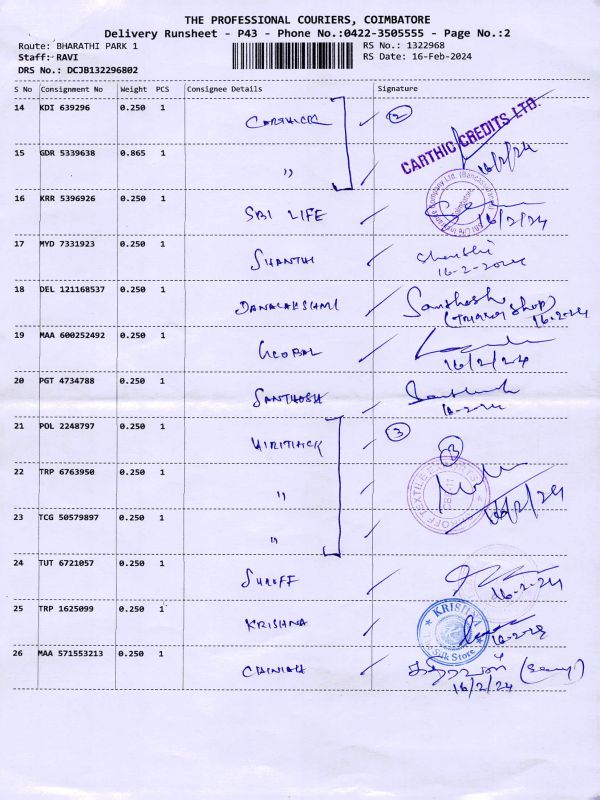 THE PROFESSIONAL COURIERS, COIMBATORE
Delivery Runsheet - P43 - Phone No.:0422-3505555 - Page No.:2
Route: BHARATHI PARK 1 RS No.: 1322968
Staff: RAVI RS Date: 16-Feb-2024
DRS No.: DCJB132296802
S No Consignment No Weight PCS Consignee Details Signature
14 KDI 639296 0.250 1 CARTHICK 2 CARTHIC CREDITS LTD.
15 GDR 5339638 0.865 1 " 16/2/24
16 KRR 5396926 0.250 1 SBI LIFE 16/2/24
17 MYD 7331923 0.250 1 SHANTHI Shanthi
16-2-2024
18 DEL 121168537 0.250 1 DANALAKSHMI Santhosh
16-2-24
19 MAA 600252492 0.250 1 GLOBAL 16/2/24
20 PGT 4734788 0.250 1 SANTHOSH
21 POL 2248797 0.250 1 HIRITHICK 3
22 TRP 6763950 0.250 1 " 16/2/24
23 TCG 50579897 0.250 1 "
24 TUT 6721057 0.250 1 SUROFF 16-2-24
25 TRP 1625099 0.250 1 KRISHNA KRISHNA Silk Store
26 MAA 571553213 0.250 1
16/2/24